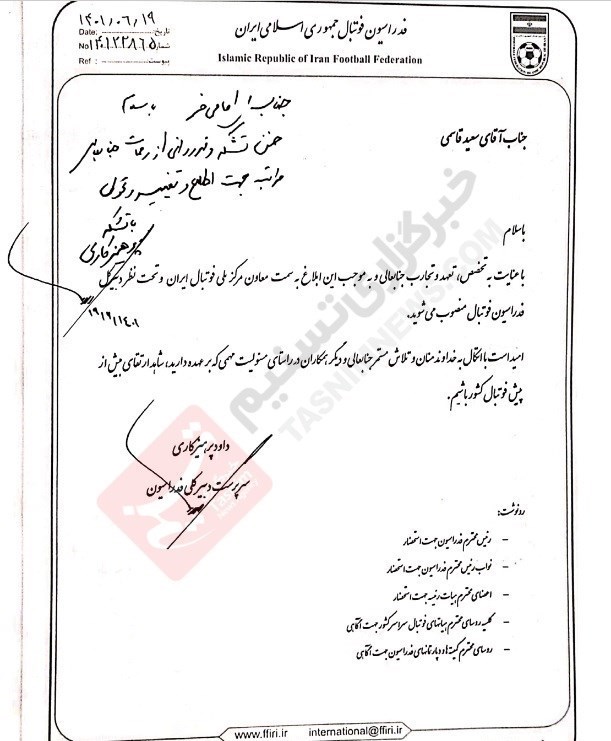 فدراسیون فوتبال جمهوری اسلامی ایران
Islamic Republic of Iran Football Federation
تاریخ: ۱۴۰۱/۰۶/۱۹
Date:
شماره ۱۴۰۱۲۳۸۶۵
No
پیوست:
Ref :
جناب با سلام
ضمن تشکر و قدردانی از زحمات جنابعالی
مراتب جهت اطلاع و تغییر و تحول
با تشکر
پرهیزکاری
جناب آقای سعید قاسمی
باسلام
با عنایت به تخصص، تعهد و تجارب جنابعالی و به موجب این ابلاغ به سمت معاون مرکز ملی فوتبال ایران و تحت نظر دبیرکل
فدراسیون فوتبال منصوب می شوید.
امید است با اتکال به خداوند منان و تلاش مستمر جنابعالی و دیگر همکاران در راستای مسئولیت مهمی که بر عهده دارید، شاهد ارتقای بیش از
پیش فوتبال کشور باشیم.
داود پرهیزکاری
سرپرست دبیرکلی فدراسیون
خبرگزاری تسنیم
TASNIMNEWS.COM
رونوشت:
– رئیس محترم فدراسیون جهت استحضار
– نواب رئیس محترم فدراسیون جهت استحضار
– اعضای محترم هیات رئیسه جهت استحضار
– کلیه روسای محترم هیاتهای فوتبال سراسر کشور جهت آگاهی
– روسای محترم کمیته ها و دپارتمانهای فدراسیون جهت آگاهی
www.ffiri.ir international@ffiri.ir